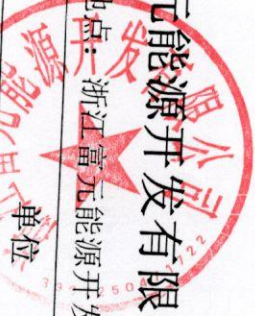 元能源开发有限
地点：浙江富元能源开发
单位
富元能源开发有限公司